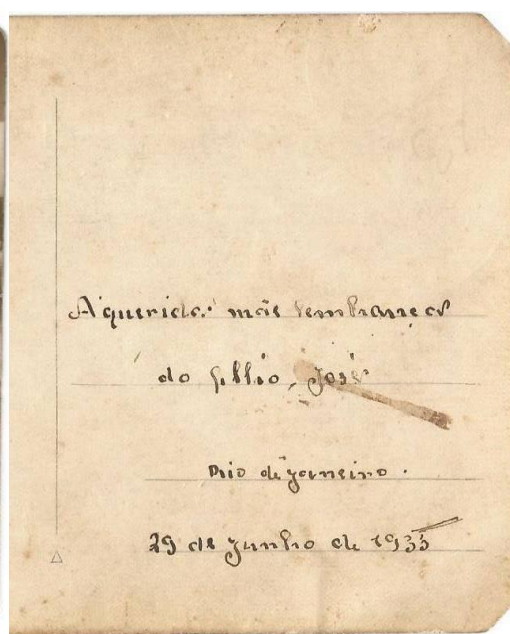 A querida mãe lembranças
do filho, José
Rio de Janeiro.
29 de Junho de 1933